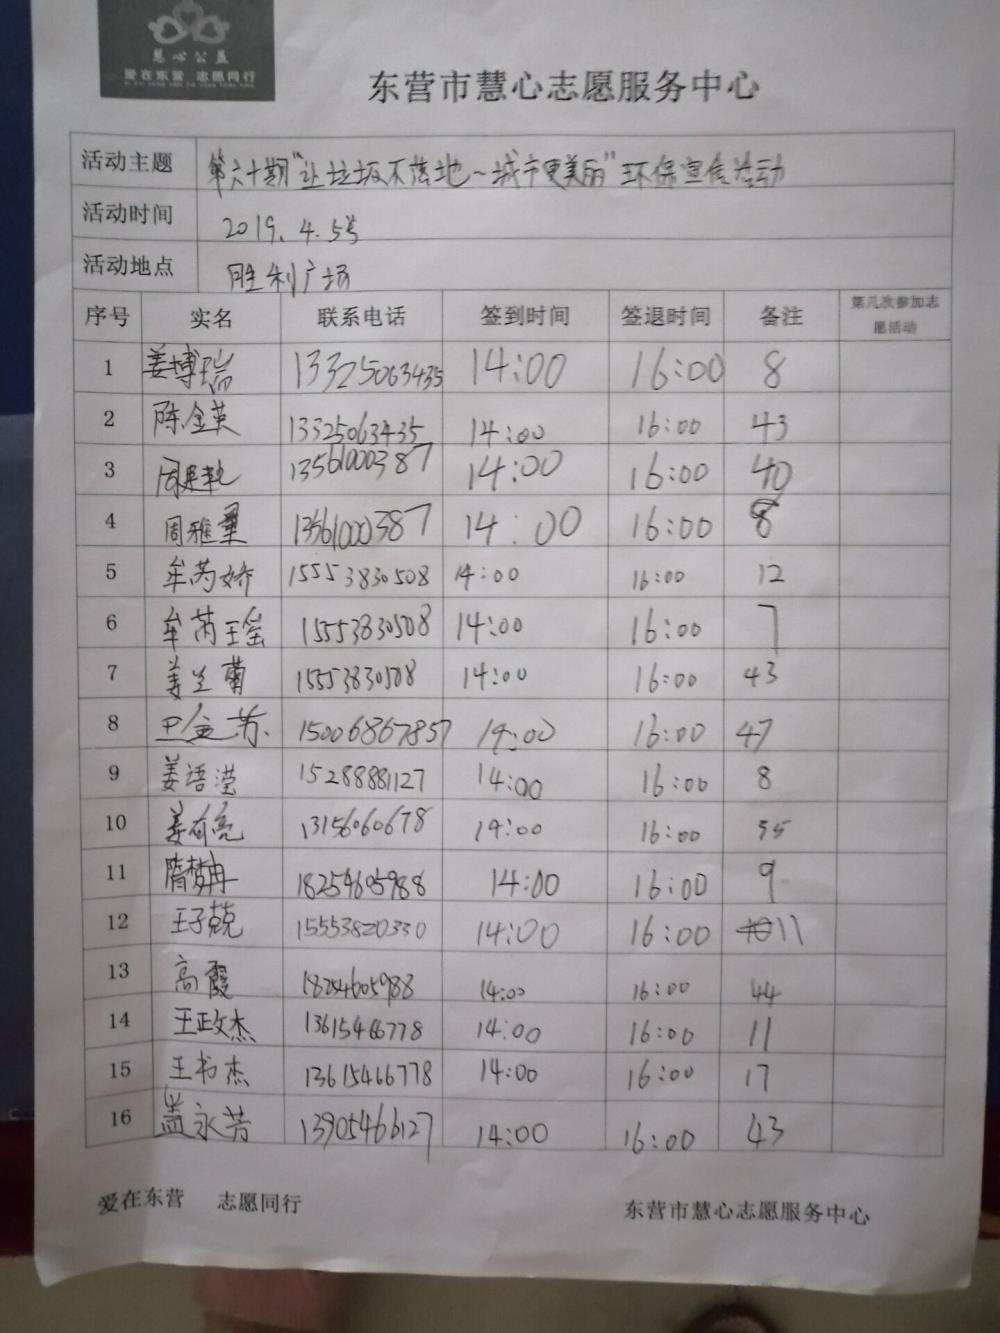 慧心公益
爱在东营 志愿同行
东营市慧心志愿服务中心
活动主题 第六十期"让垃圾不落地~城市更美丽"环保宣传活动
活动时间 2019.4.5号
活动地点 胜利广场
序号 实名 联系电话 签到时间 签退时间 备注 第几次参加志愿活动
1 姜博瑞 13325063435 14:00 16:00 8
2 陈金英 13325063435 14:00 16:00 43
3 13561000387 14:00 16:00 40
4 周雅 13561000387 14:00 16:00 8
5 牟芮娇 15553830508 14:00 16:00 12
6 牟芮瑶 15553830508 14:00 16:00 7
7 姜兰菊 15553830508 14:00 16:00 43
8 15006867857 14:00 16:00 47
9 姜语滢 15288881127 14:00 16:00 8
10 姜有亮 13156060678 14:00 16:00
11 隋梦冉 18254605988 14:00 16:00 9
12 王子兢 15553820330 14:00 16:00 11
13 高霞 18254605988 14:00 16:00 44
14 王政杰 13615466778 14:00 16:00 11
15 王书杰 13615466778 14:00 16:00 17
16 盖永芳 13905466127 14:00 16:00 43
爱在东营 志愿同行 东营市慧心志愿服务中心